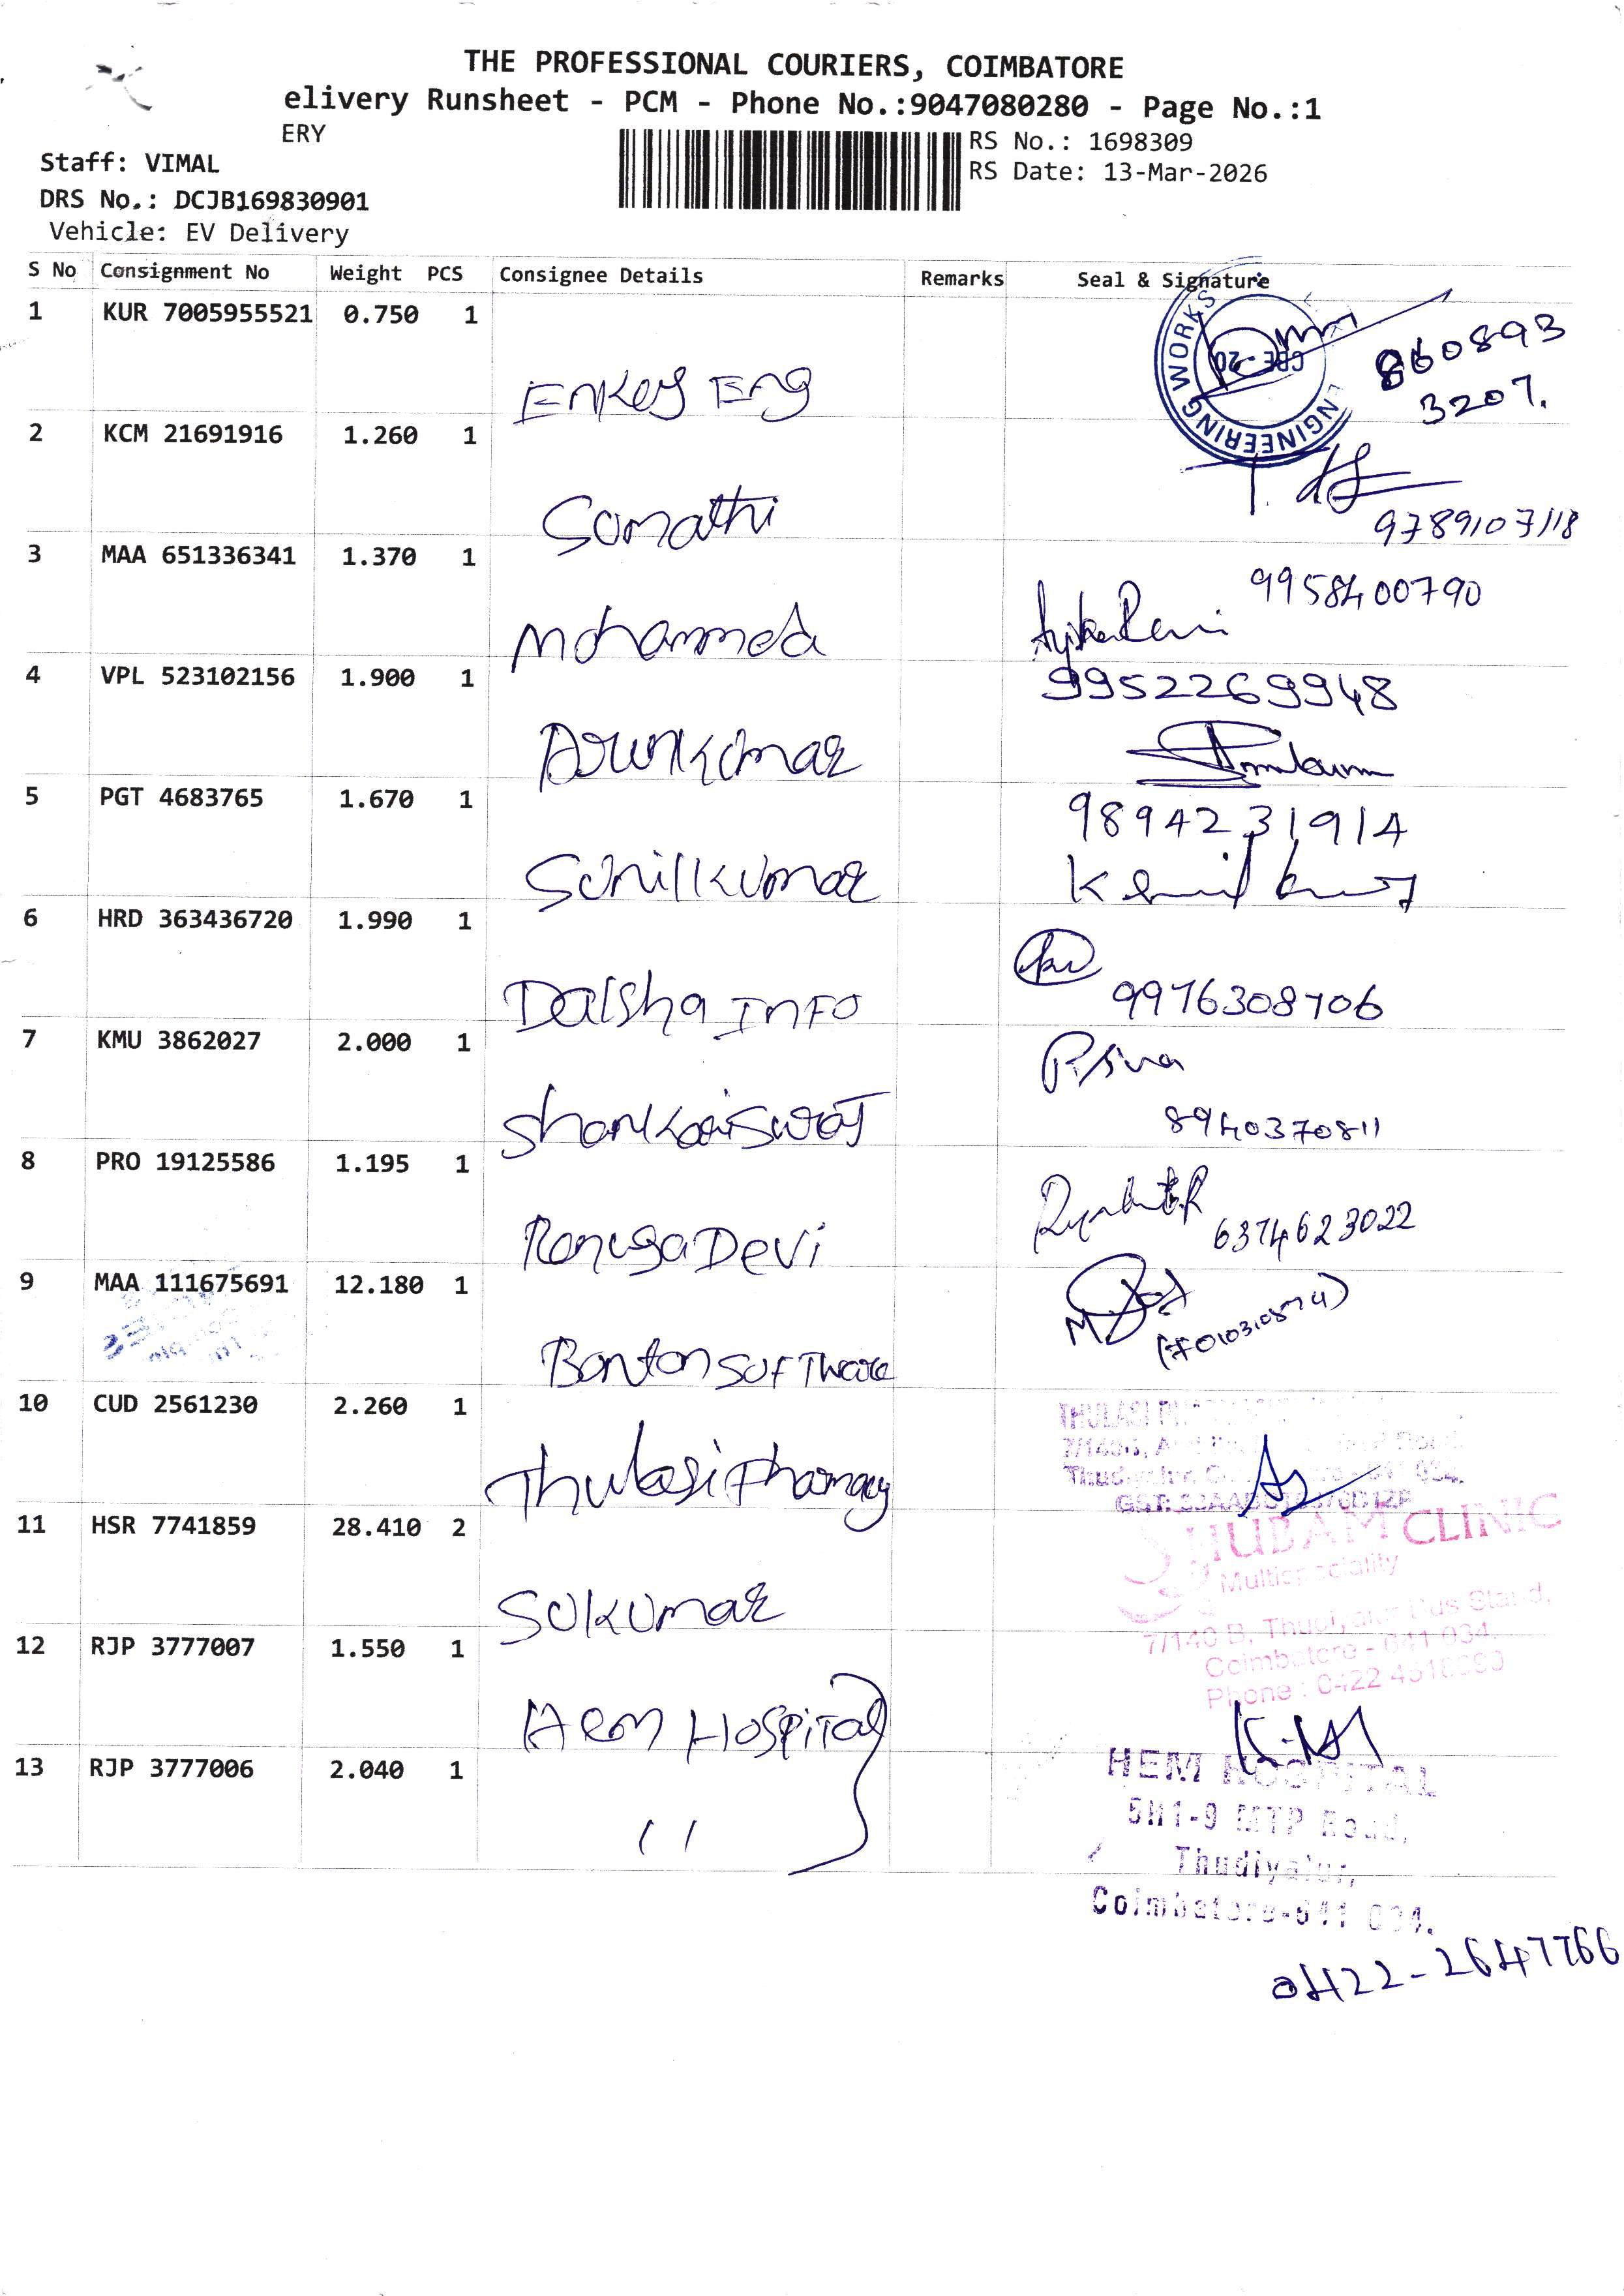 THE PROFESSIONAL COURIERS, COIMBATORE
elivery Runsheet - PCM - Phone No.:9047080280 - Page No.:1
ERY
RS No.: 1698309
Staff: VIMAL
RS Date: 13-Mar-2026
DRS No.: DCJB169830901
Vehicle: EV Delivery
S No Consignment No Weight PCS Consignee Details Remarks Seal & Signature
1 KUR 7005955521 0.750 1
Enkey Eng
ENGINEERING WORKS
CBE - 20
860893
3207.
2 KCM 21691916 1.260 1
Sumathi
9789107118
3 MAA 651336341 1.370 1
Mohammed
9958400790
4 VPL 523102156 1.900 1
9952269948
Arunkumar
5 PGT 4683765 1.670 1
9894231914
Sunilkumar
6 HRD 363436720 1.990 1
Dalsha INFO
9976308706
7 KMU 3862027 2.000 1
P. Siva
8940370811
8 PRO 19125586 1.195 1
RenugaDevi
6374623022
9 MAA 111675691 12.180 1
Bonton SOFTware
10 CUD 2561230 2.260 1
THULASI
Thulasi Pharmacy
11 HSR 7741859 28.410 2
SHUBAM CLINIC
Multispeciality
SUKUMAR
7/140 B, Thudiyalur Bus Stand,
Coimbatore - 641 034.
Phone : 0422
12 RJP 3777007 1.550 1
Hospital
13 RJP 3777006 2.040 1
HEM HOSPITAL
MTP Road,
Thudiyalur,
Coimbatore-641 034.
0422-2647766